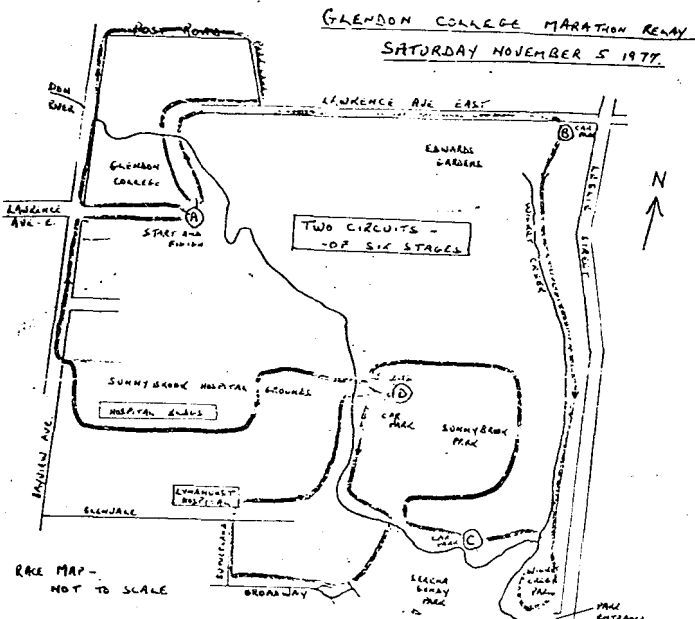 GLENDON COLLEGE MARATHON RELAY
SATURDAY NOVEMBER 5 1977.
POST ROAD
DON
RIVER
LAWRENCE AVE EAST
B
CAR
PARK
EDWARDS
GARDENS
GLENDON
COLLEGE
LESLIE STREET
N
LAWRENCE
AVE. E.
A
START AND
FINISH
TWO CIRCUITS -
-OF SIX STAGES
WILKET CREEK
SUNNYBROOK HOSPITAL GROUNDS
HOSPITAL BLDGS
D
CAR
PARK
SUNNYBROOK
PARK
BAYVIEW AVE.
LYNDHURST
HOSPITAL
GLENVALE
CAR
PARK
C
SUTHERLAND
BROADWAY
SERENA
GUNDY
PARK
WILKET
CREEK
PARK
PARK
ENTRANCE
RACE MAP -
NOT TO SCALE